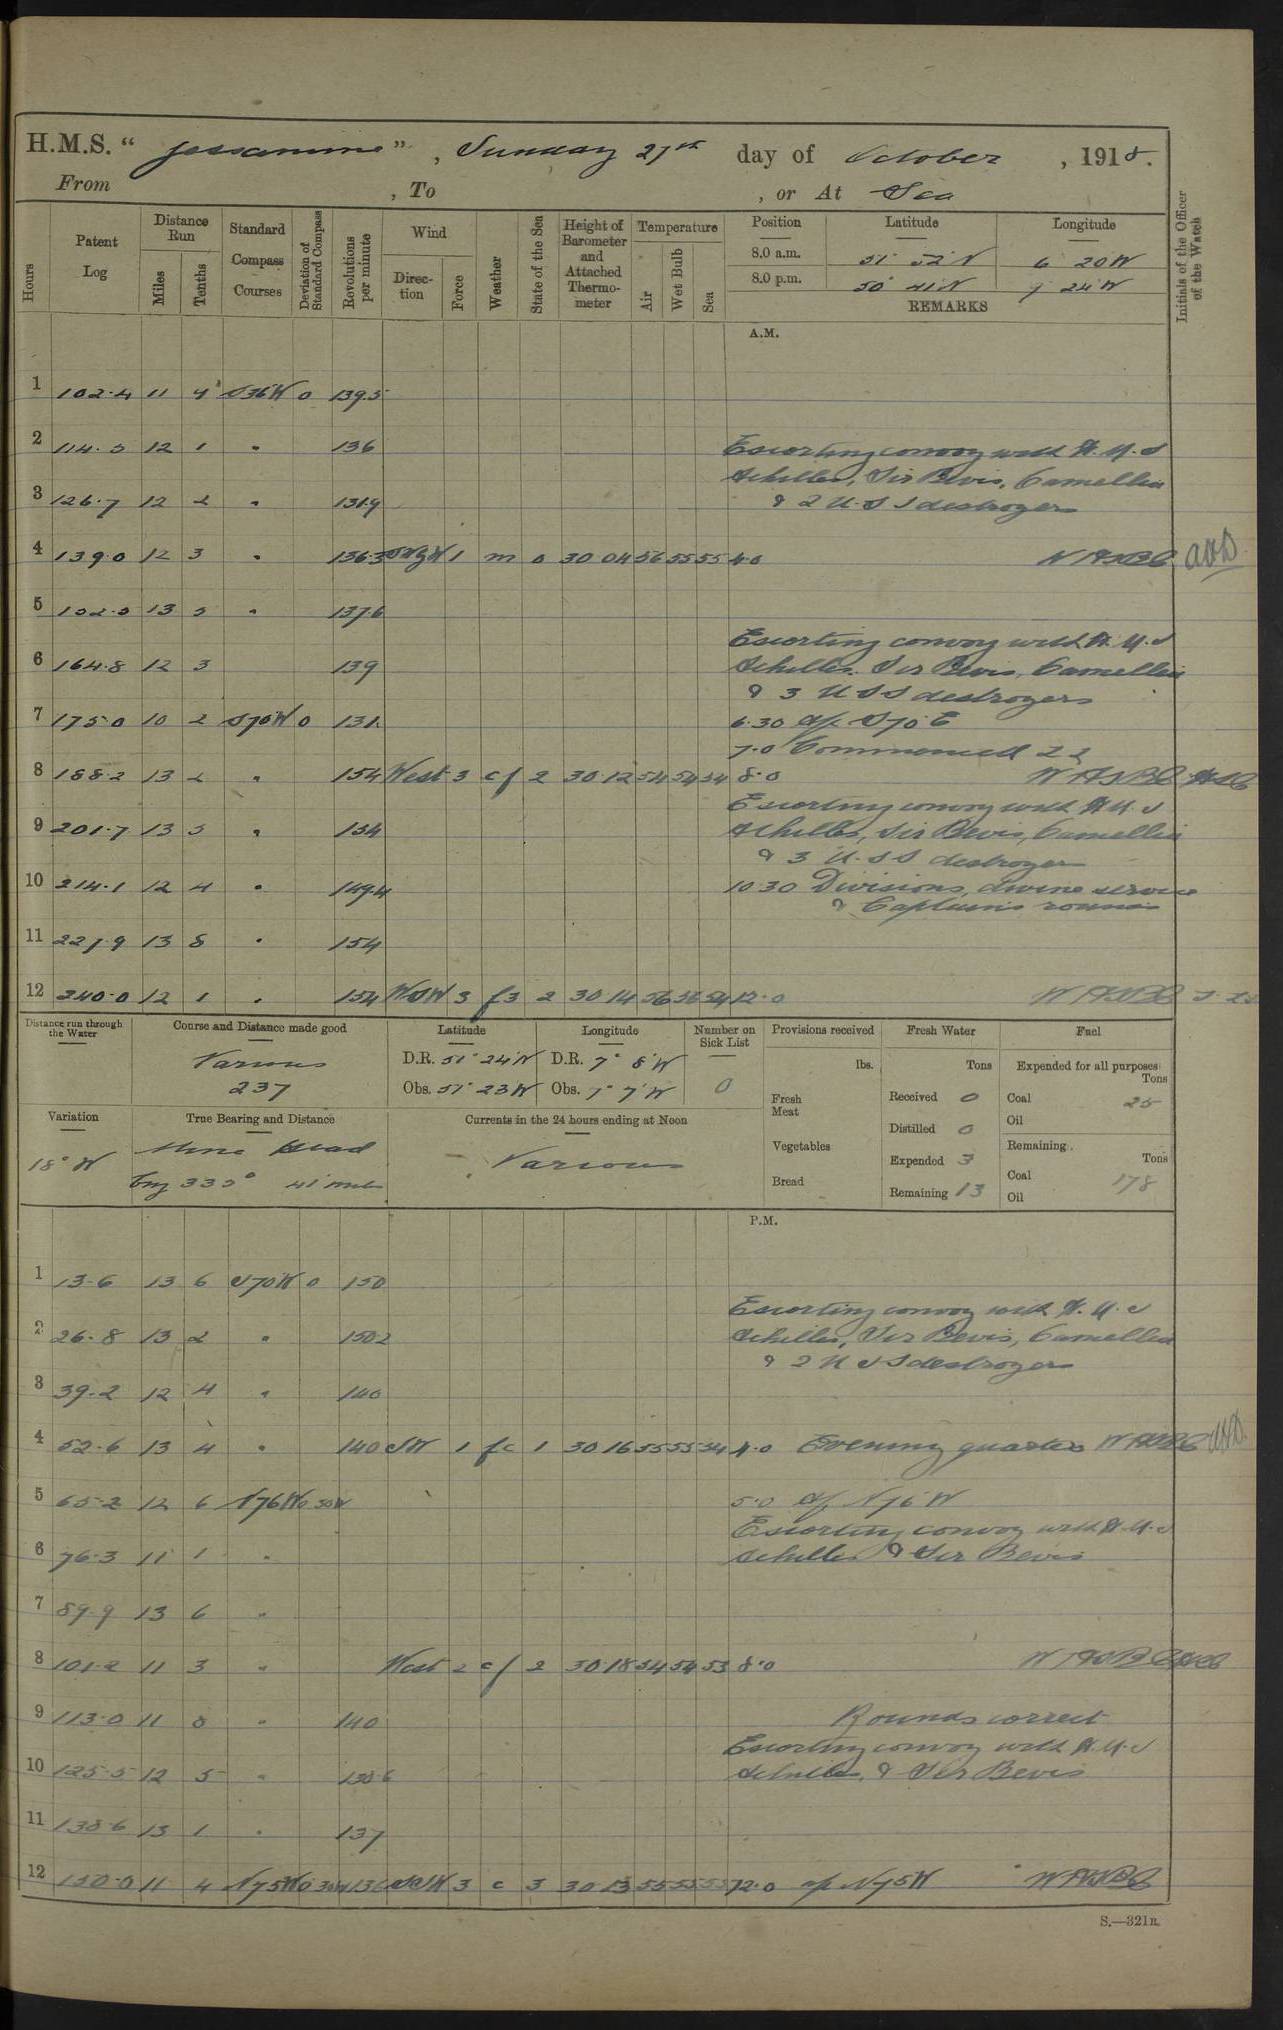 H.M.S. " Jessamine ", Sunday 27th day of October, 1918.
From , To , or At Sea
Hours
Patent Log
Distance Run
Miles
Tenths
Standard Compass Courses
Deviation of Standard Compass
Revolutions per minute
Wind
Direction
Force
Weather
State of the Sea
Height of Barometer and Attached Thermometer
Temperature
Air
Wet Bulb
Sea
Position Latitude Longitude
8.0 a.m. 51° 52' N 6 20 W
8.0 p.m. 50° 41' N 9 24 W
REMARKS
Initials of the Officer of the Watch
A.M.
1 102.4 11 4 S36W 0 139.5
2 114.5 12 1 " 136
Escorting convoy with H.M.S
Achilles, Sir Bevis, Camellia
3 126.7 12 2 " 131.9
& 2 U.S.S destroyers
4 139.0 12 3 " 136.3 1 m 0 30 04 56 55 55 4.0
5 13 5 " 137.6
Escorting convoy with H.M.S
6 164.8 12 3 139
Achilles, Sir Bevis, Camellia
& 3 U S S destroyers
7 175.0 10 2 S70W 0 131
6.30 a/c S70°E
7.0 Commenced 22
8 188.2 13 2 " 154 West 3 c f 2 30 12 54 54 54 8.0
Escorting convoy with H.M.S
9 201.7 13 5 " 154
Achilles, Sir Bevis, Camellia
& 3 U.S.S destroyers
10 214.1 12 4 " 149.4
10.30 Divisions, divine service
& Captain's rounds
11 227.9 13 8 " 154
12 240.0 12 1 " 154 WSW 3 f3 2 30 14 56 56 54 12.0
Distance run through the Water
Course and Distance made good
Various
237
Latitude
D.R. 51° 24' N
Obs. 51° 23 N
Longitude
D.R. 7° 8' W
Obs. 7° 7' W
Number on Sick List
0
Provisions received
lbs.
Fresh Meat
Vegetables
Bread
Fresh Water
Tons
Received 0
Distilled 0
Expended 3
Remaining 13
Fuel
Expended for all purposes
Tons
Coal 25
Oil
Remaining
Tons
Coal 178
Oil
Variation
18° W
True Bearing and Distance
Mine Head
brg 335° 41 miles
Currents in the 24 hours ending at Noon
Various
P.M.
1 13.6 13 6 S70W 0 150
Escorting convoy with H.M.S
2 26.8 13 2 " 150.2
Achilles, Sir Bevis, Camellia
& 2 U S S destroyers
3 39.2 12 4 " 140
4 52.6 13 4 " 140 SW 1 fc 1 30 16 55 55 54 4.0 Evening quarters
5 65.2 12 6 N76W
5.0 a/c N76°W
Escorting convoy with H.M.S
6 76.3 11 1 "
Achilles & Sir Bevis
7 89.9 13 6 "
8 101.2 11 3 " West 2 c f 2 30 18 54 54 53 8.0
9 113.0 11 8 " 140
Rounds correct
Escorting convoy with H.M.S
10 125.5 12 5 " 138.6
Achilles, & Sir Bevis
11 138.6 13 1 " 137
12 150.0 11 4 N75W 3 c 3 30 13 55 55 55 12.0 a/c N75W
S.—321B.